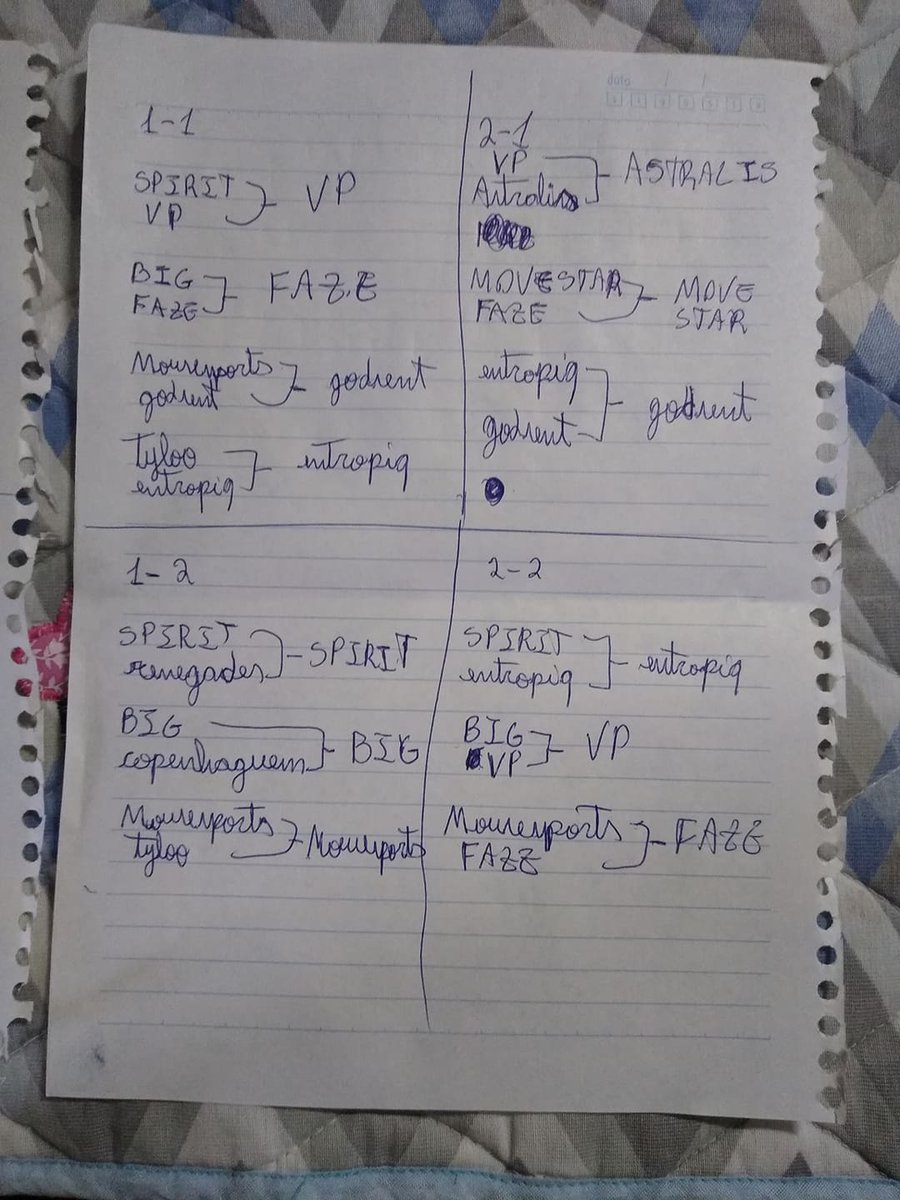 data / /
1-1
SPIRIT
VP
VP
BIG
FAZE
FAZE
Mousesports
godsent
godsent
tyloo
entropiq
entropiq
2-1
VP
Astralis
ASTRALIS
MOVESTAR
FAZE
MOVE
STAR
entropiq
godsent
godsent
1-2
SPIRIT
renegades
SPIRIT
BIG
copenhaguem
BIG
Mousesports
tyloo
Mousesports
2-2
SPIRIT
entropiq
entropiq
BIG
VP
VP
Mousesports
FAZE
FAZE